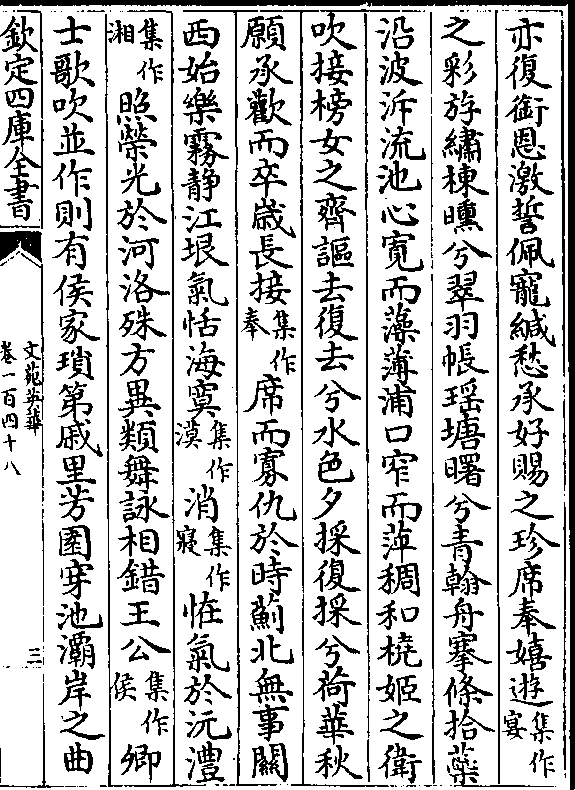 亦復銜恩激誓佩寵緘愁承好賜之珍席奉嬉遊集作宴
之彩斿繡棟曛兮翠羽帳瑶塘曙兮青翰舟搴條拾蘂
沿波泝流池心寛而藻薄浦口窄而萍稠和橈姬之衛
吹接榜女之齊謳去復去兮水色夕採復採兮荷華秋
願承歡而卒歲長接集作奉席而寡仇於時薊北無事關
西始樂霧静江垠氣恬海寞集作漠消集作寢恠氣於沅澧
集作湘照榮光於河洛殊方異類舞詠相錯王公集作侯卿
士歌吹並作則有侯家瑣第戚里芳園穿池灞岸之曲
欽定四庫全書
文苑英華
卷一百四十八
三